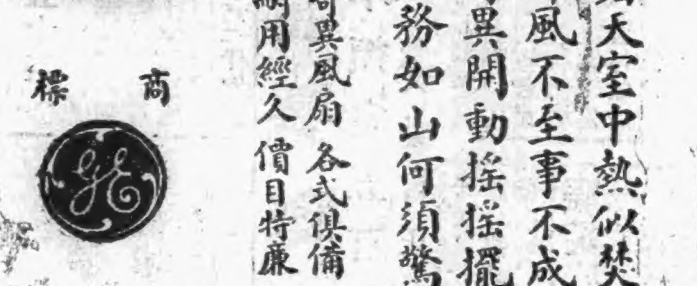 天室中熱似焚
風不至事不成
異開動搖搖擺
務如山何須驚
奇異風扇 各式俱備
耐用經久 價目特廉
商標
GE